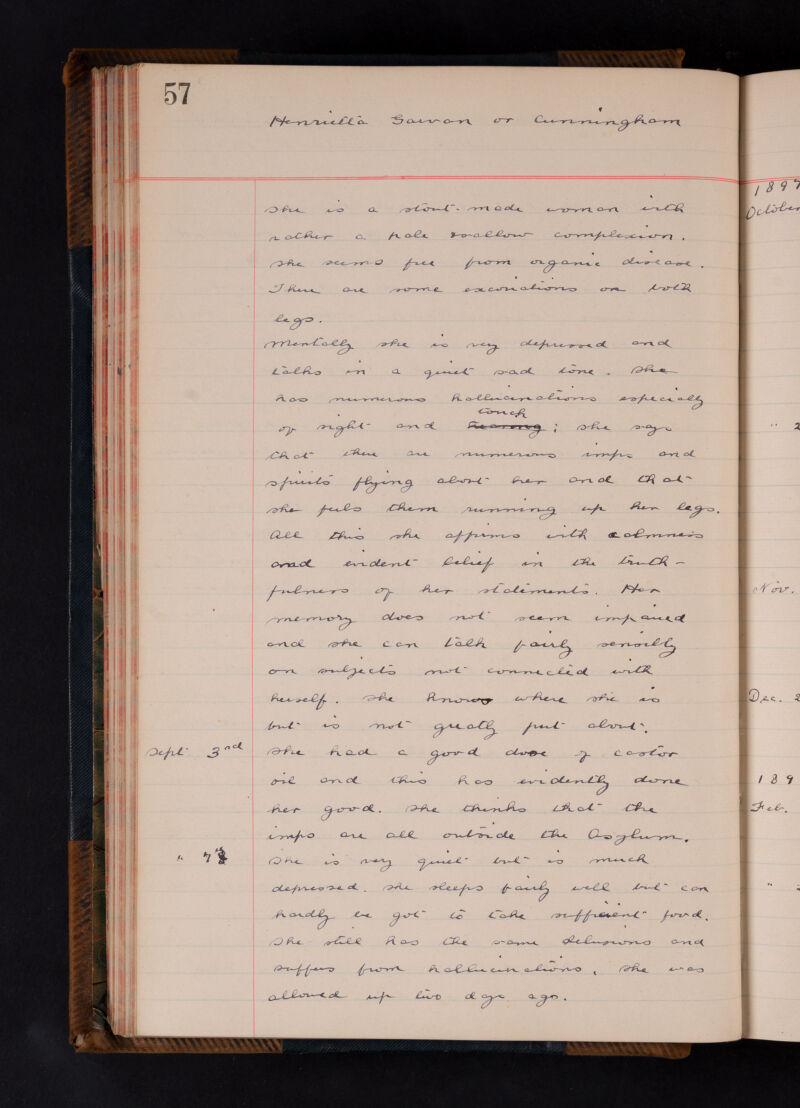 57
Henrietta Gawan or Cunningham
She is a stout-made woman with
rather a pale sallow complexion.
She seems free from organic disease.
There are some excoriations on both
legs.
Mentally she is very depressed and
talks in a quiet sad tone. She
has numerous hallucinations especially
touch
of sight and hearing; she says
that there are numerous imps and
spirits flying about her and that
she feels them running up her legs.
All this she affirms with calmness
and evident belief in the truth-
fulness of her statements. Her
memory does not seem impaired
and she can talk fairly sensibly
on subjects not connected with
herself. She knows where she is
but is not greatly put about.
Sept 3rd She had a good dose of castor
oil and this has evidently done
her good. She thinks that the
imps are all outside the Asylum.
" 7th She is very quiet but is much
depressed. She sleeps fairly well but can
hardly be got to take sufficient food.
She still has the same delusions and
suffers from hallucinations, she was
allowed up two days ago.
1897
October
" 2
Nov.
Dec. 2
189
Feb.
"